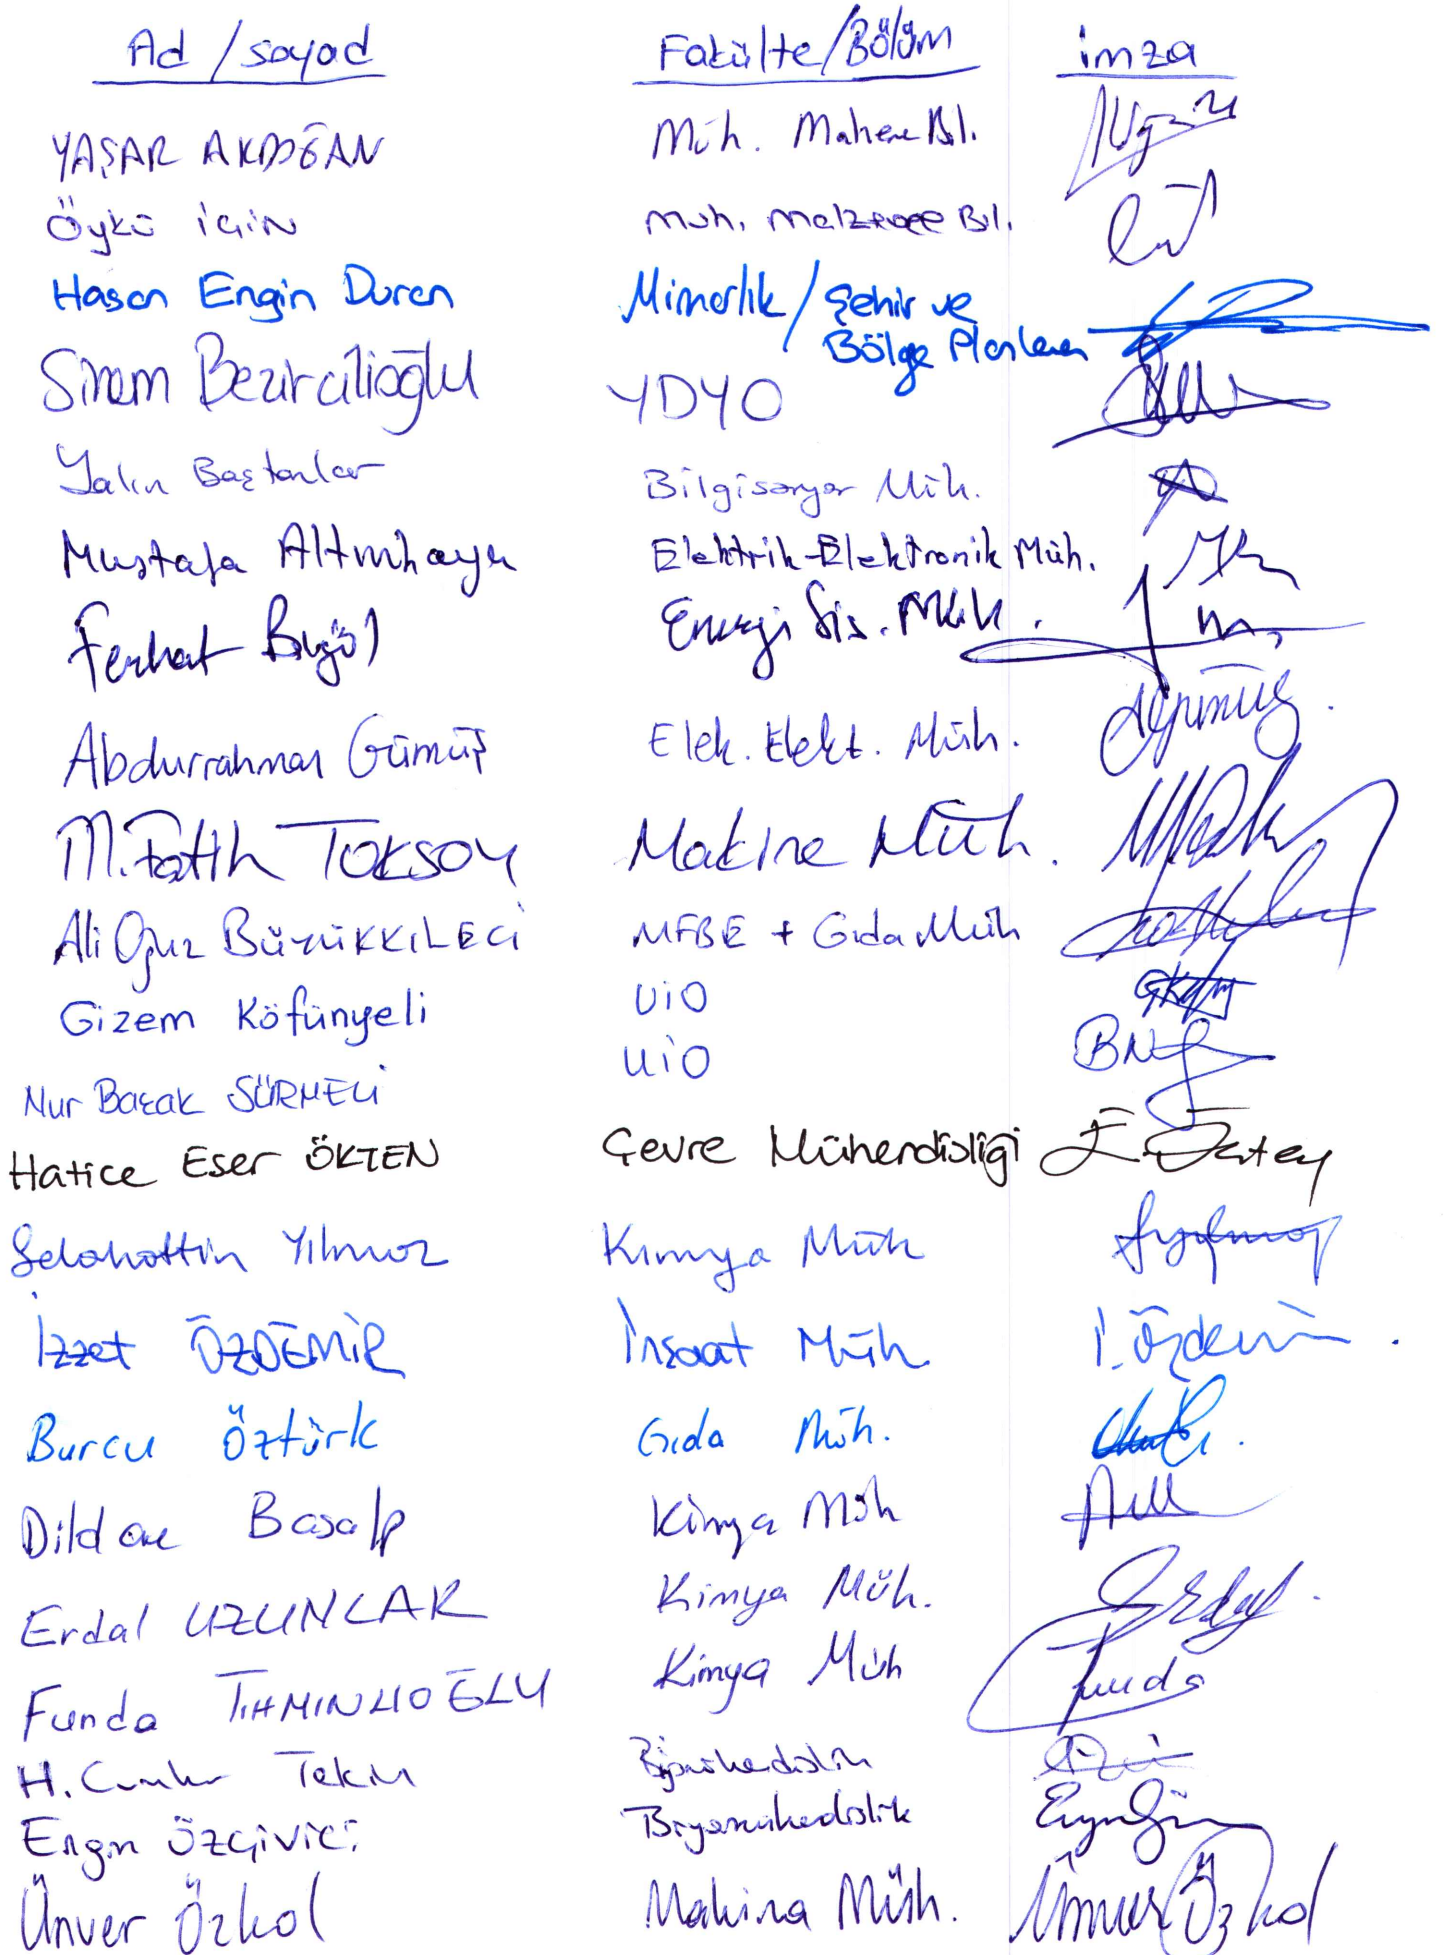 Ad / soyad Fakülte/Bölüm imza
YAŞAR AKDOĞAN Müh. Malzeme Bil.
Öykü İÇİN Müh. Malzeme Bil.
Hasan Engin Duran Mimarlık / Şehir ve
Bölge Planlama
Sinem Bezircilioğlu YDYO
Yalın Baştanlar Bilgisayar Müh.
Mustafa Altınkaya Elektrik-Elektronik Müh.
Ferhat Bingöl Enerji Sis. Müh.
Abdurrahman Gümüş Elek. Elekt. Müh.
M. Fatih TOKSOY Makine Müh.
Ali Oğuz BÜYÜKKİLECİ MFBE + Gıda Müh
Gizem Köfünyeli UİO
Nur Başak SÜRMELİ UİO
Hatice Eser ÖKTEN Çevre Mühendisliği E. Ökten
Selahattin Yılmaz Kimya Müh
İzzet ÖZDEMİR İnşaat Müh. İ. Özdemir
Burcu Öztürk Gıda Müh.
Dildare Başalp Kimya Müh
Erdal UZUNLAR Kimya Müh. Erdal
Funda TIHMINLIOĞLU Kimya Müh Funda
H. Cumhur Tekin Biyomühendislik
Engin ÖZÇİVİCİ Biyomühendislik
Ünver Özkol Makina Müh. Ünver Özkol